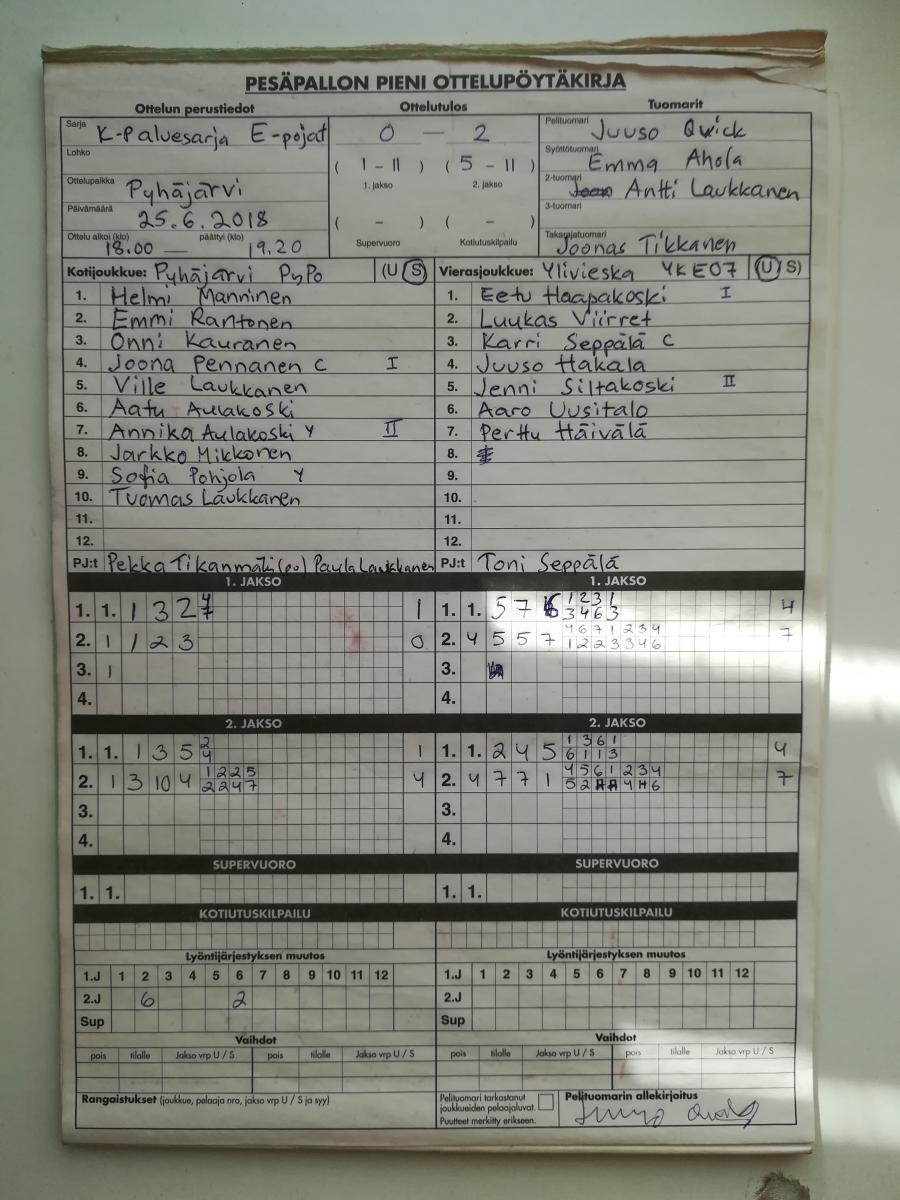 PESÄPALLON PIENI OTTELUPÖYTÄKIRJA
Ottelun perustiedot
Sarja K-Paluesarja E-pojat
Lohko
Ottelupaikka Pyhäjärvi
Päivämäärä 25.6.2018
Ottelu alkoi (klo) 18.00 — päättyi (klo) 19.20
Ottelutulos
0 — 2
( 1 - 11 ) ( 5 - 11 )
1. jakso 2. jakso
( - ) ( - )
Supervuoro Kotiutuskilpailu
Tuomarit
Pelituomari Juuso Qwick
Syöttötuomari Emma Ahola
2-tuomari Antti Laukkanen
3-tuomari
Takarajatuomari Joonas Tikkanen
Kotijoukkue: Pyhäjärvi PyPo (U S)
1. Helmi Manninen
2. Emmi Rantonen
3. Onni Kauranen
4. Joona Pennanen C I
5. Ville Laukkanen
6. Aatu Aulakoski
7. Annika Aulakoski Y II
8. Jarkko Mikkonen
9. Sofia Pohjola Y
10. Tuomas Laukkanen
11.
12.
PJ:t Pekka Tikanmäki (po) Paula Laukkanen
Vierasjoukkue: Ylivieska YKE07 (U S)
1. Eetu Haapakoski I
2. Luukas Viirret
3. Karri Seppälä C
4. Juuso Hakala
5. Jenni Siltakoski II
6. Aaro Uusitalo
7. Perttu Häivälä
8.
9.
10.
11.
12.
PJ:t Toni Seppälä
1. JAKSO
1. 1. 1 3 2 1
2. 1 1 2 3 0
3. 1
4.
1. JAKSO
1. 1. 5 7 6 1 2 3 1 4
3 4 6 3
2. 4 5 5 7 4 6 7 1 2 3 4 7
1 2 2 3 3 4 6
3.
4.
2. JAKSO
1. 1. 1 3 5 2 1
4
2. 1 3 10 4 1 2 2 5 4
2 2 4 7
3.
4.
2. JAKSO
1. 1. 2 4 5 1 3 6 1 4
6 1 1 3
2. 4 7 7 1 4 5 6 1 2 3 4 7
5 2 4 6
3.
4.
SUPERVUORO
1. 1.
SUPERVUORO
1. 1.
KOTIUTUSKILPAILU
KOTIUTUSKILPAILU
Lyöntijärjestyksen muutos
1.J 1 2 3 4 5 6 7 8 9 10 11 12
2.J 6 2
Sup
Lyöntijärjestyksen muutos
1.J 1 2 3 4 5 6 7 8 9 10 11 12
2.J
Sup
Vaihdot
pois tilalle Jakso vrp U / S pois tilalle Jakso vrp U / S
Vaihdot
pois tilalle Jakso vrp U / S pois tilalle Jakso vrp U / S
Rangaistukset (joukkue, pelaaja nro, jakso vrp U / S ja syy)
Pelituomari tarkastanut
joukkueiden pelaajaluvat.
Puutteet merkitty erikseen.
Pelituomarin allekirjoitus